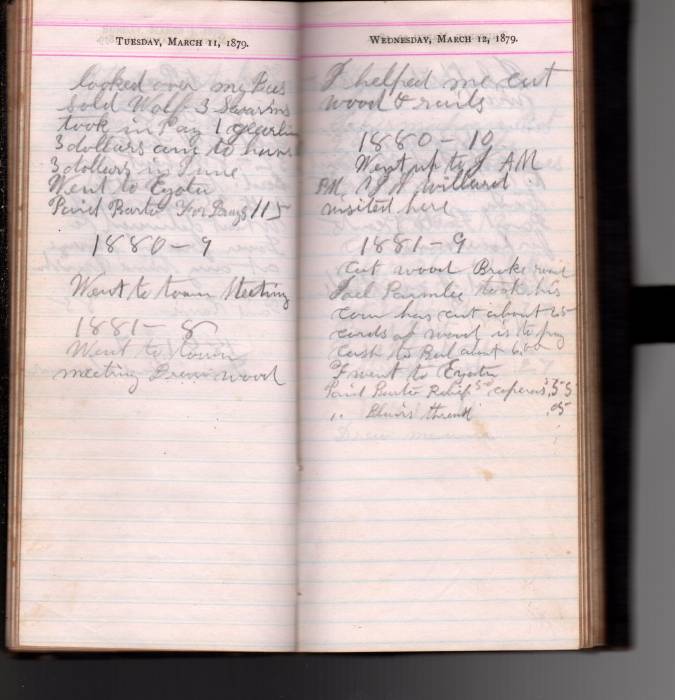 TUESDAY, MARCH 11, 1879.
looked over my Bees
Sold Wolf 3 Swarms
took in Pay 1 yearlin
3 dollars am to have
3 dollars in June
Went to Eyota
Paid Barto For Drugs 115
1880 - 9
Went to town Meeting
1881 - 8
Went to town
meeting Drew wood
WEDNESDAY, MARCH 12, 1879.
F helped me cut
wood & rails
1880 - 10
Went up to J AM
PM Willard
visited here
1881 - 9
Cut wood Broke
Joel Parmlee took his
corn has cut about 25
cords of wood is to pay
Cash to Bal about 6.00
F went to Eyota
Paid Barto Relief 50 coperas 5 55
" thread .05
Drew manure